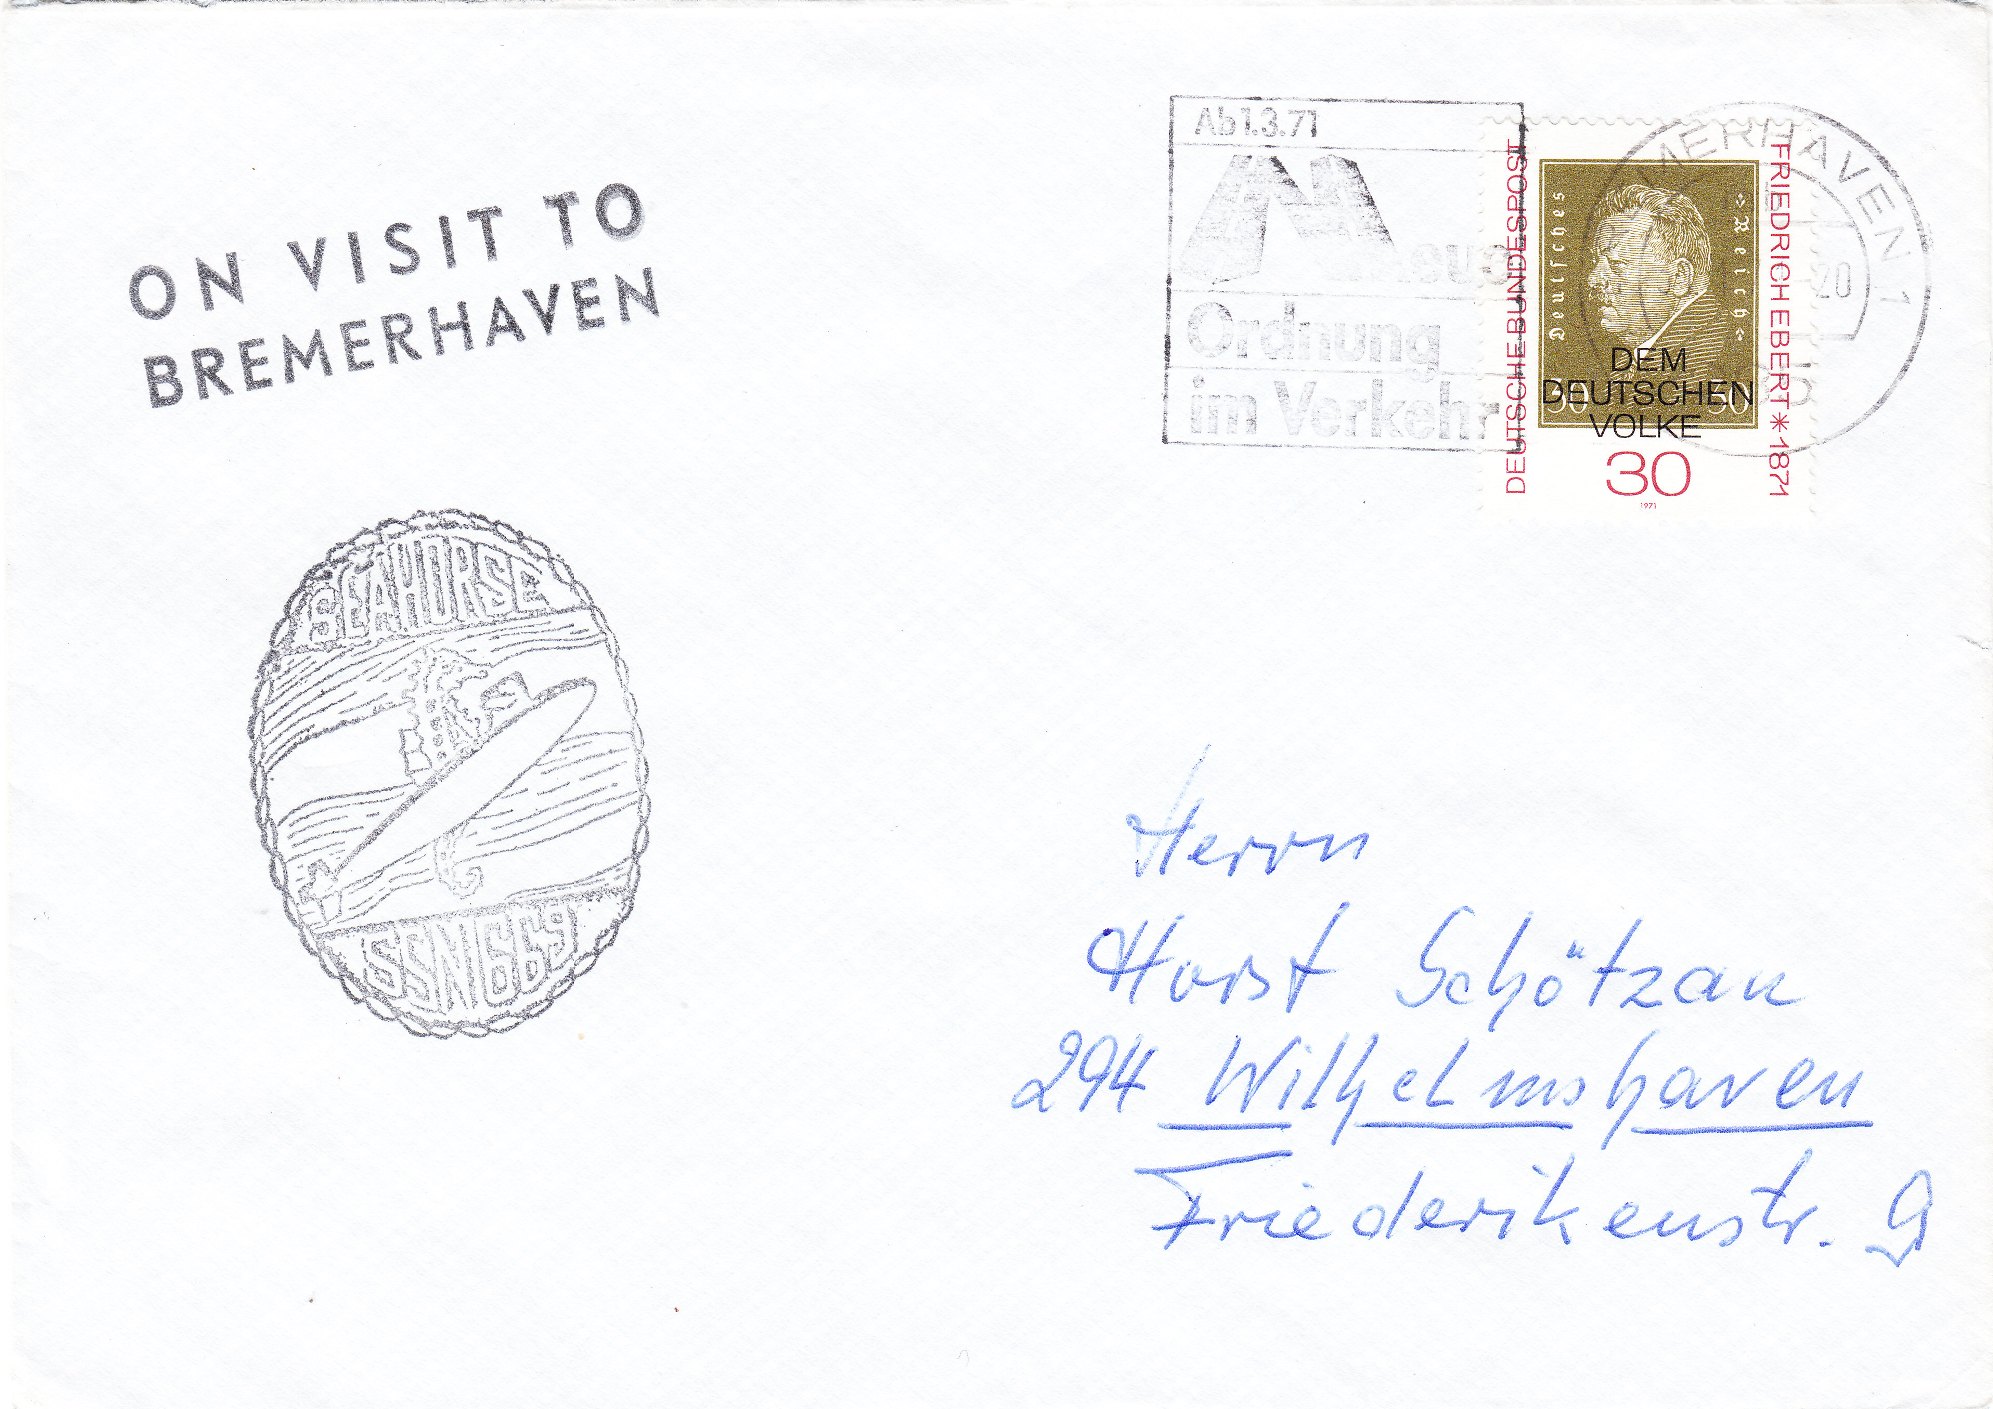 ON VISIT TO
BREMERHAVEN
SEAHORSE
SSN669
Ab 1.3.71
Neue
Ordnung
im Verkehr
DEUTSCHE BUNDESPOST
Deutsches
Reich
FRIEDRICH EBERT * 1871
DEM
DEUTSCHEN
VOLKE
30
1971
MERHAVEN 1
20
Herrn
Horst Schötzau
294 Wilhelmshaven
Friederikenstr. 9